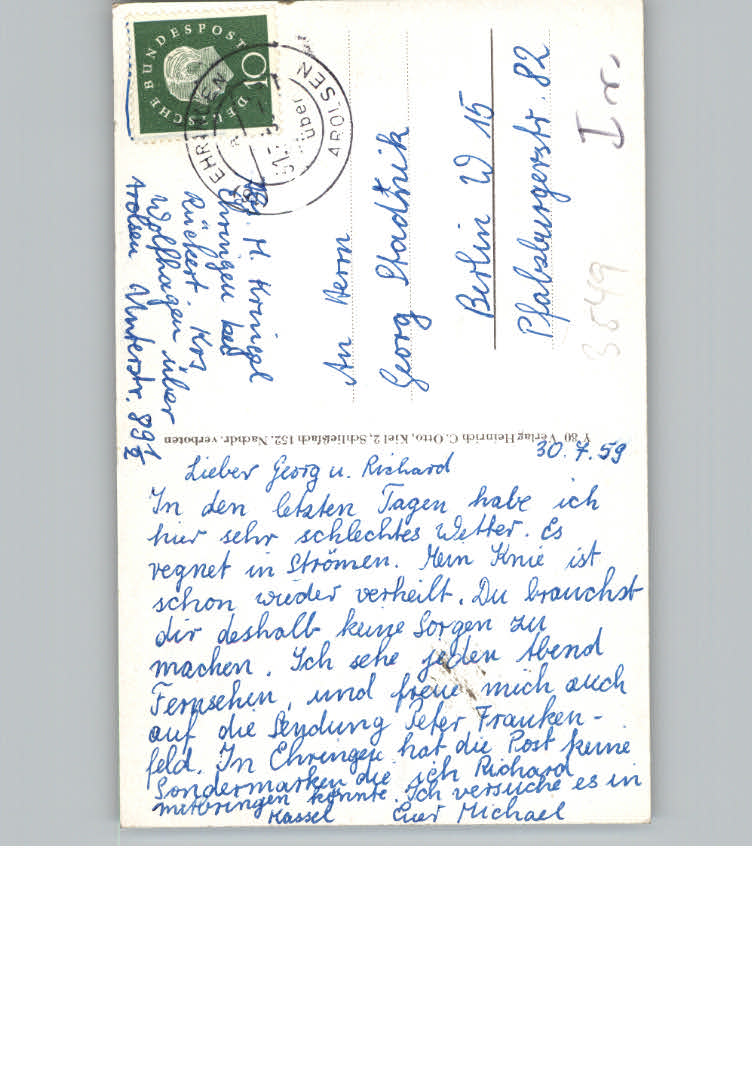 30.7.59
Lieber Georg u. Richard
In den letzten Tagen habe ich
hier sehr schlechtes Wetter. Es
regnet in Strömen. Mein Knie ist
schon wieder verheilt. Du brauchst
dir deshalb keine Sorgen zu
machen. Ich sehe jeden Abend
Fernsehen, und freue mich auch
auf die Sendung Peter Franken-
feld. In Ehringen hat die Post keine
Sondermarken die ich Richard
mitbringen könnte. Ich versuche es in
Kassel Euer Michael
Y 80 Verlag Heinrich C. Otto, Kiel 2, Schließfach 152. Nachdr. verboten
DEUTSCHE BUNDESPOST
10
EHRINGEN
über
AROLSEN
M.
Ehringen bei
Rückert. Krs
Wolfhagen über
Arolsen Unterstr. 89 1/2
An Herrn
Georg Stadtnik
Berlin W 15
Pfalzburgerstr. 82
3549